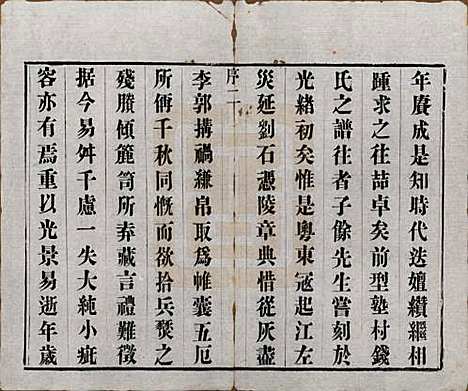 年賡成是知時代迭嬗纘繼相
踵求之往喆卓矣前型塾村錢
氏之譜往者子餘先生嘗刻於
光緒初矣惟是粵東冦起江左
災延劉石憑陵章典惜從灰盡
序二
李郭搆禍縑帛取爲帷囊五厄
所傅千秋同慨而欲拾兵燹之
殘賸傾簏笥所弆藏言禮難徵
据今易舛千慮一失大純小疵
容亦有焉重以光景易逝年歲